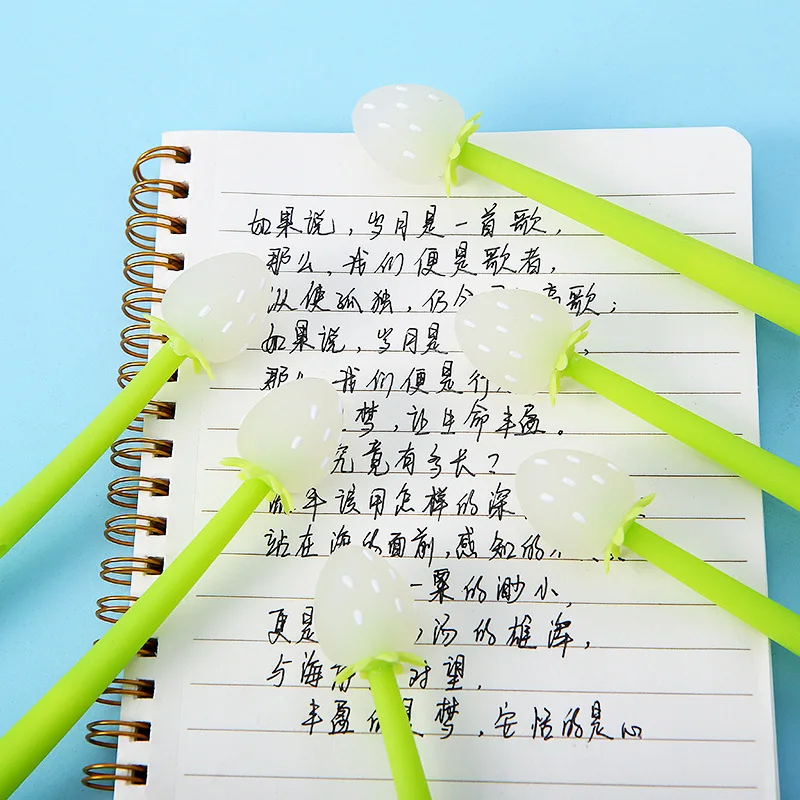 如果说，岁月是一首歌，
那么，我们便是歌者，
纵使孤独，仍会 高歌；
如果说，岁月是
那么 我们便是行
梦，让生命丰盈。
究竟有多长？
年 该用怎样的深
站在海的面前，感知的
一粟的渺小，
更是 汤的雄浑，
与海 对望，
丰盈的是梦，安恬的是心